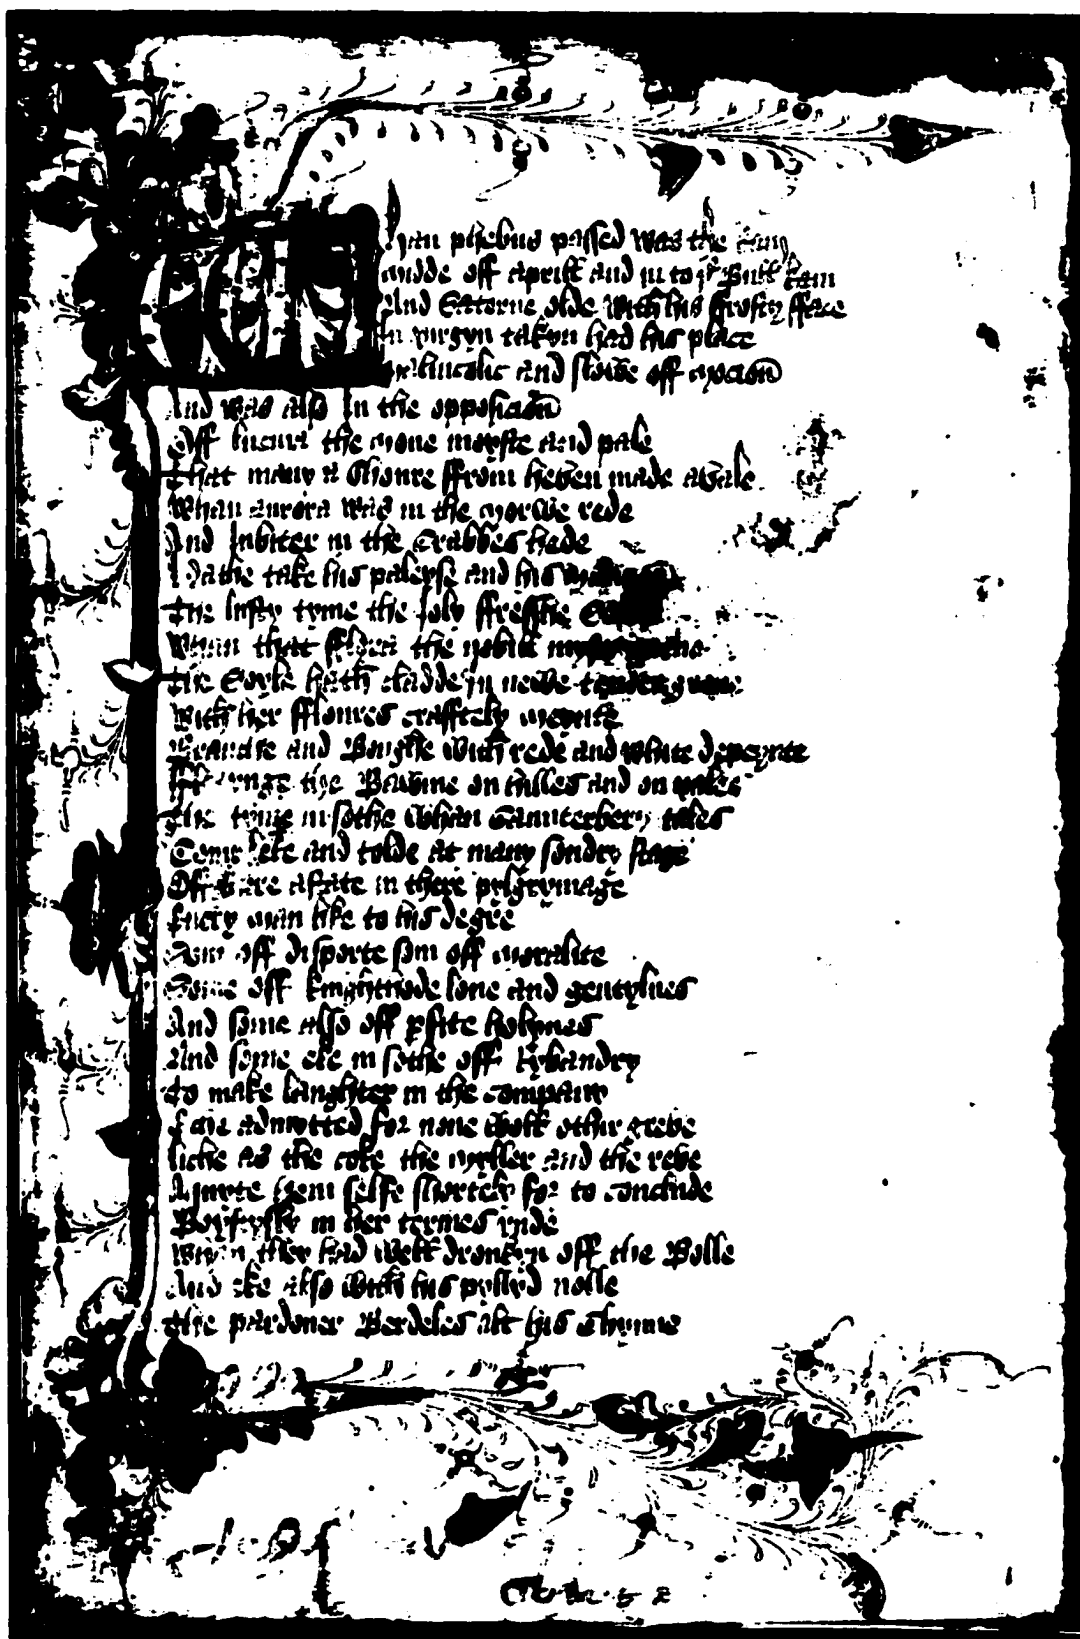 Whan phebus passed was the
midde off aprill and in to þe Bull cam
And Satorne olde With his frosty fface
In virgyn takyn had his place
malincolic and slowe off mocion
And was also In the opposicion
Off lucina the mone moyste and pale
That many a Shoure ffrom heven made avale
Whan aurora was in the morwe rede
And Jubiter in the Crabbes hede
Hathe take his paleyse and his
The lusty tyme the Joly ffresshe
Whan that fflora the nobill
The Soyle hath cladde in newe tendre grene
With her ffloures craftely meynte
Braunche and Boughe With rede and White depeynte
the Bawme on hilles and on vales
The tyme in sothe Whan Caunterbery tales
Complete and tolde at many sondry stage
Off estate in there pylgrymage
Euery man like to his degre
Som off disporte som off moralite
Some off knighthode loue and gentylnes
And some also off perfite holynes
And some eke in sothe off Rybaudry
To make laughter in the companny
admytted for none Woll other greve
liche as the coke the myller and the reve
Aquyte hem selfe shortely for to conclude
Boystysly in her termes rude
Whan they had Well dronkyn off the Bolle
And eke also With his pylled nolle
The pardoner Berdeles all his Chynne